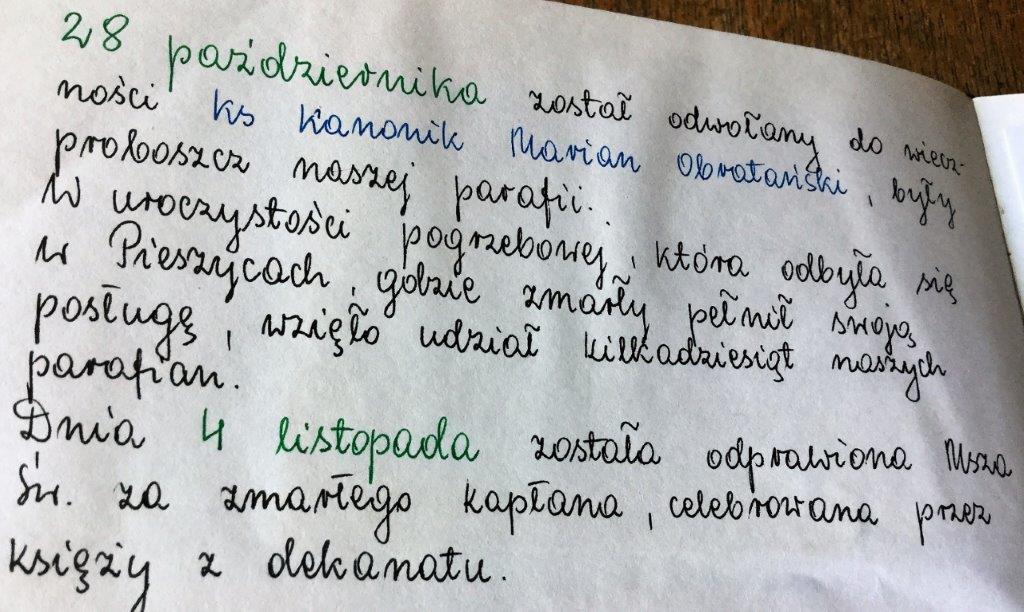 28 października został odwołany do wiecz-
ności ks kanonik Marian Obratański, były
proboszcz naszej parafii.
W uroczystości pogrzebowej, która odbyła się
w Pieszycach, gdzie zmarły pełnił swoją
posługę, wzięło udział kilkadziesiąt naszych
parafian.
Dnia 4 listopada została odprawiona Msza
Św. za zmarłego kapłana, celebrowana przez
księży z dekanatu.